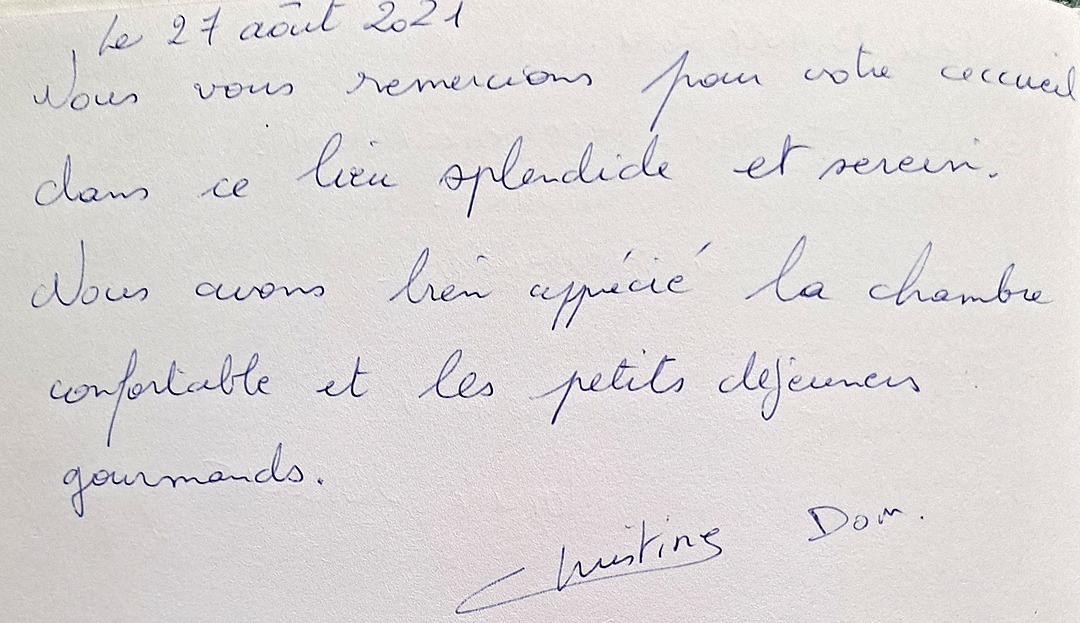 Le 27 août 2021
Nous vous remercions pour votre accueil
dans ce lieu splendide et serein.
Nous avons bien apprécié la chambre
confortable et les petits déjeuners
gourmands.
Christine Dom.